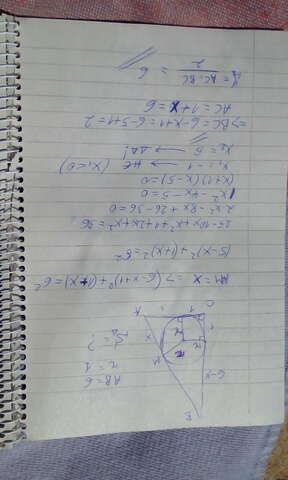 AB=6
r=1
S△=?
AM=x => (6-x+1)²+(1+x)²=6²
(5-x)²+(1+x)²=6²
25-10x+x²+1+2x+x²=36
2x²-8x+26-36=0
x²-4x-5=0
(x+1)(x-5)=0
x₁=-1 → не (x₁<0)
x₂=5 → да!
=> BC=6-x+1=6-5+1=2
AC=1+x=6
S△=AC.BC/2=6